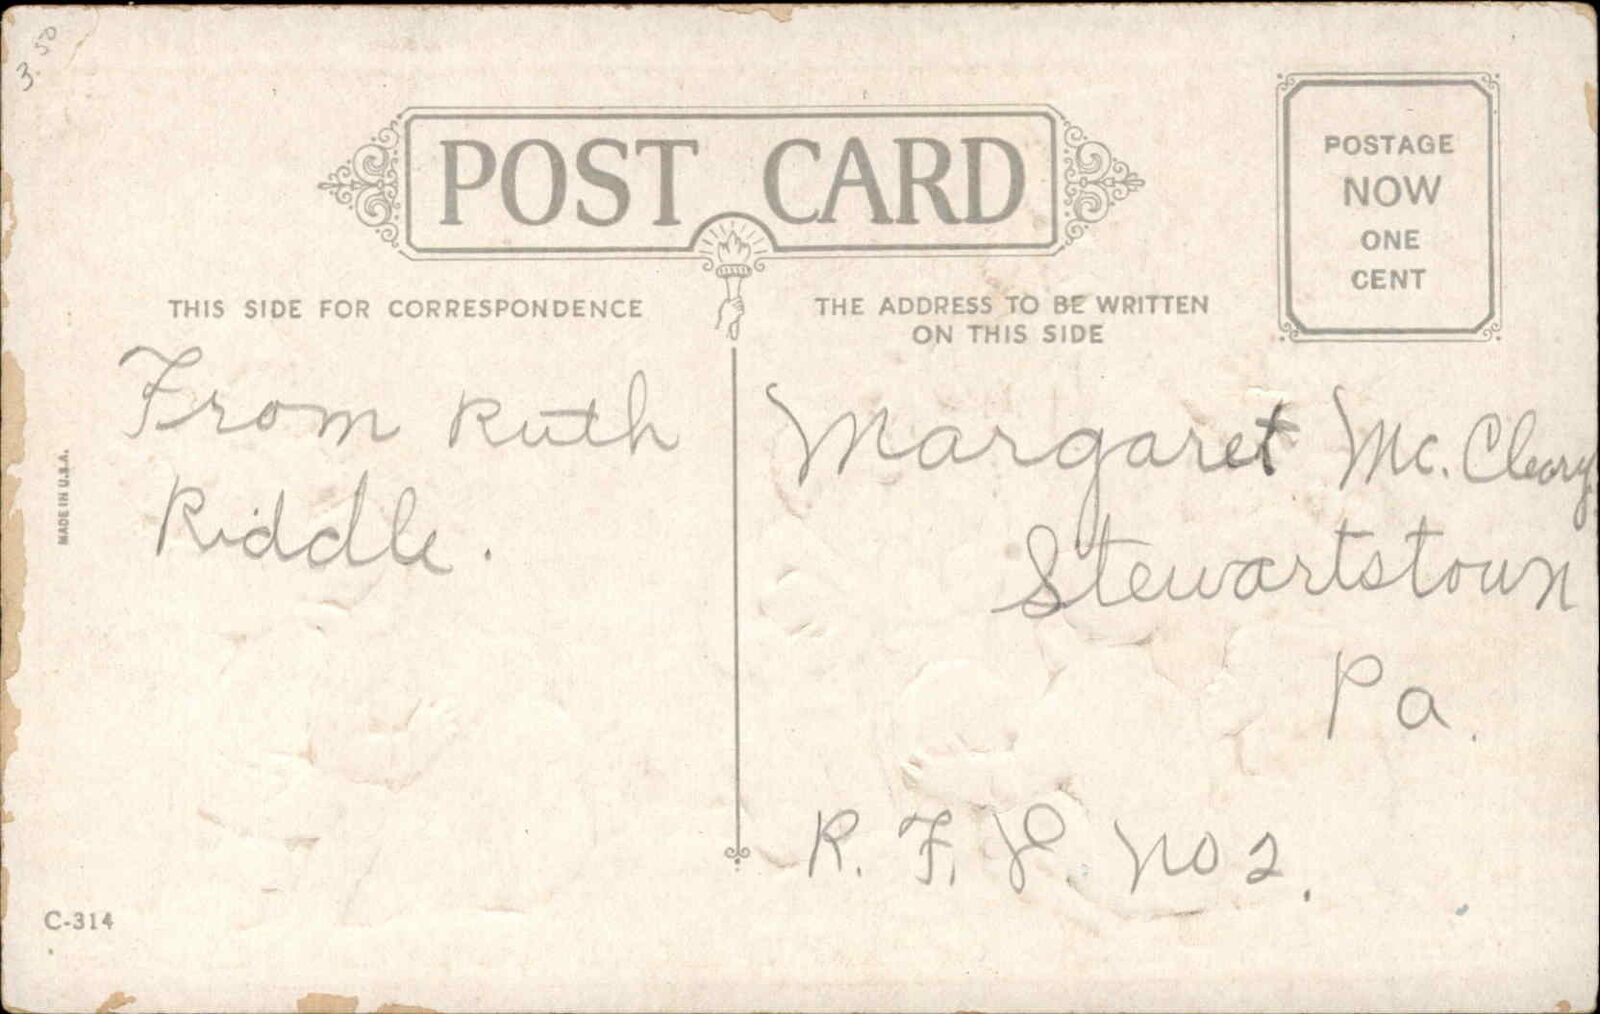 3.50
POST CARD
POSTAGE
NOW
ONE
CENT
THIS SIDE FOR CORRESPONDENCE
THE ADDRESS TO BE WRITTEN
ON THIS SIDE
From Ruth
Riddle.
MADE IN U.S.A.
Margaret Mc. Cleary
Stewartstown
Pa.
R. F. D. No 2.
C-314